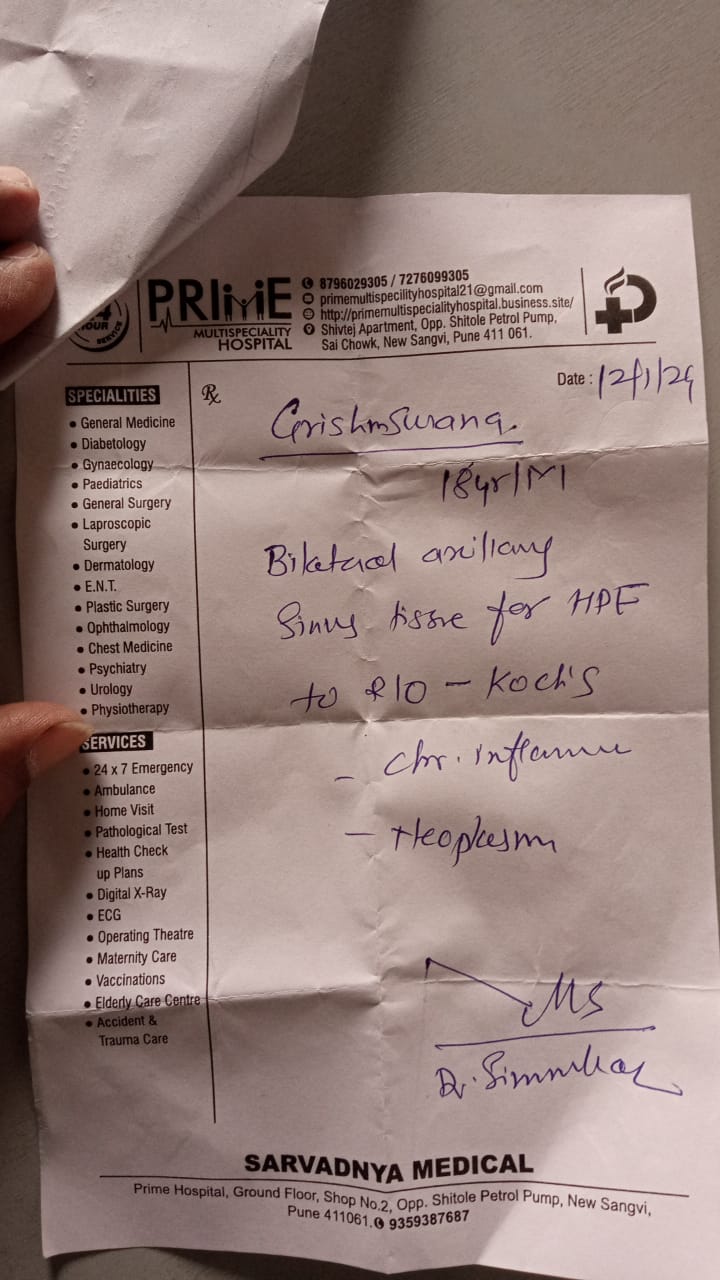 24
HOUR
SERVICE
PRIME
MULTISPECIALITY
HOSPITAL
8796029305 / 7276099305
primemultispecilityhospital21@gmail.com
http://primemultispecialityhospital.business.site/
Shivtej Apartment, Opp. Shitole Petrol Pump,
Sai Chowk, New Sangvi, Pune 411 061.
Date : 12/1/24
SPECIALITIES
• General Medicine
• Diabetology
• Gynaecology
• Paediatrics
• General Surgery
• Laproscopic
Surgery
• Dermatology
• E.N.T.
• Plastic Surgery
• Ophthalmology
• Chest Medicine
• Psychiatry
• Urology
• Physiotherapy
SERVICES
• 24 x 7 Emergency
• Ambulance
• Home Visit
• Pathological Test
• Health Check
up Plans
• Digital X-Ray
• ECG
• Operating Theatre
• Maternity Care
• Vaccinations
• Elderly Care Centre
• Accident &
Trauma Care
℞
18yr/M
Bilateral axillary
Sinus tissue for HPE
to R/O - Koch's
- Chr. inflamm
- Neoplasm
MS
Dr.
SARVADNYA MEDICAL
Prime Hospital, Ground Floor, Shop No.2, Opp. Shitole Petrol Pump, New Sangvi,
Pune 411061. 9359387687